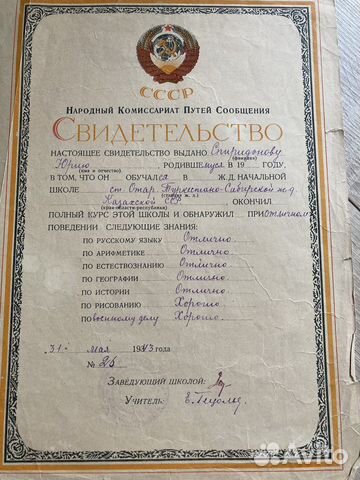 СССР
Народный Комиссариат Путей Сообщения
Свидетельство
НАСТОЯЩЕЕ СВИДЕТЕЛЬСТВО ВЫДАНО Спиридонову
(фамилия)
Юрию, РОДИВШЕМУСЯ В 19 ГОДУ,
(имя и отчество)
В ТОМ, ЧТО ОН ОБУЧАЛСЯ В Ж.Д. НАЧАЛЬНОЙ
ШКОЛЕ ст. Отар, Туркестано-Сибирской ж.д.
(станция ж. д.)
Казахской ССР, ОКОНЧИЛ
(край-область-республика)
ПОЛНЫЙ КУРС ЭТОЙ ШКОЛЫ И ОБНАРУЖИЛ ПРИ отличном
ПОВЕДЕНИИ СЛЕДУЮЩИЕ ЗНАНИЯ:
ПО РУССКОМУ ЯЗЫКУ Отлично.
ПО АРИФМЕТИКЕ Отлично.
ПО ЕСТЕСТВОЗНАНИЮ Отлично.
ПО ГЕОГРАФИИ Отлично.
ПО ИСТОРИИ Отлично.
ПО РИСОВАНИЮ Хорошо.
ПО военному делу Хорошо.
31 мая 1943 года
№ 25
Заведующий школой:
Учитель:
Avito